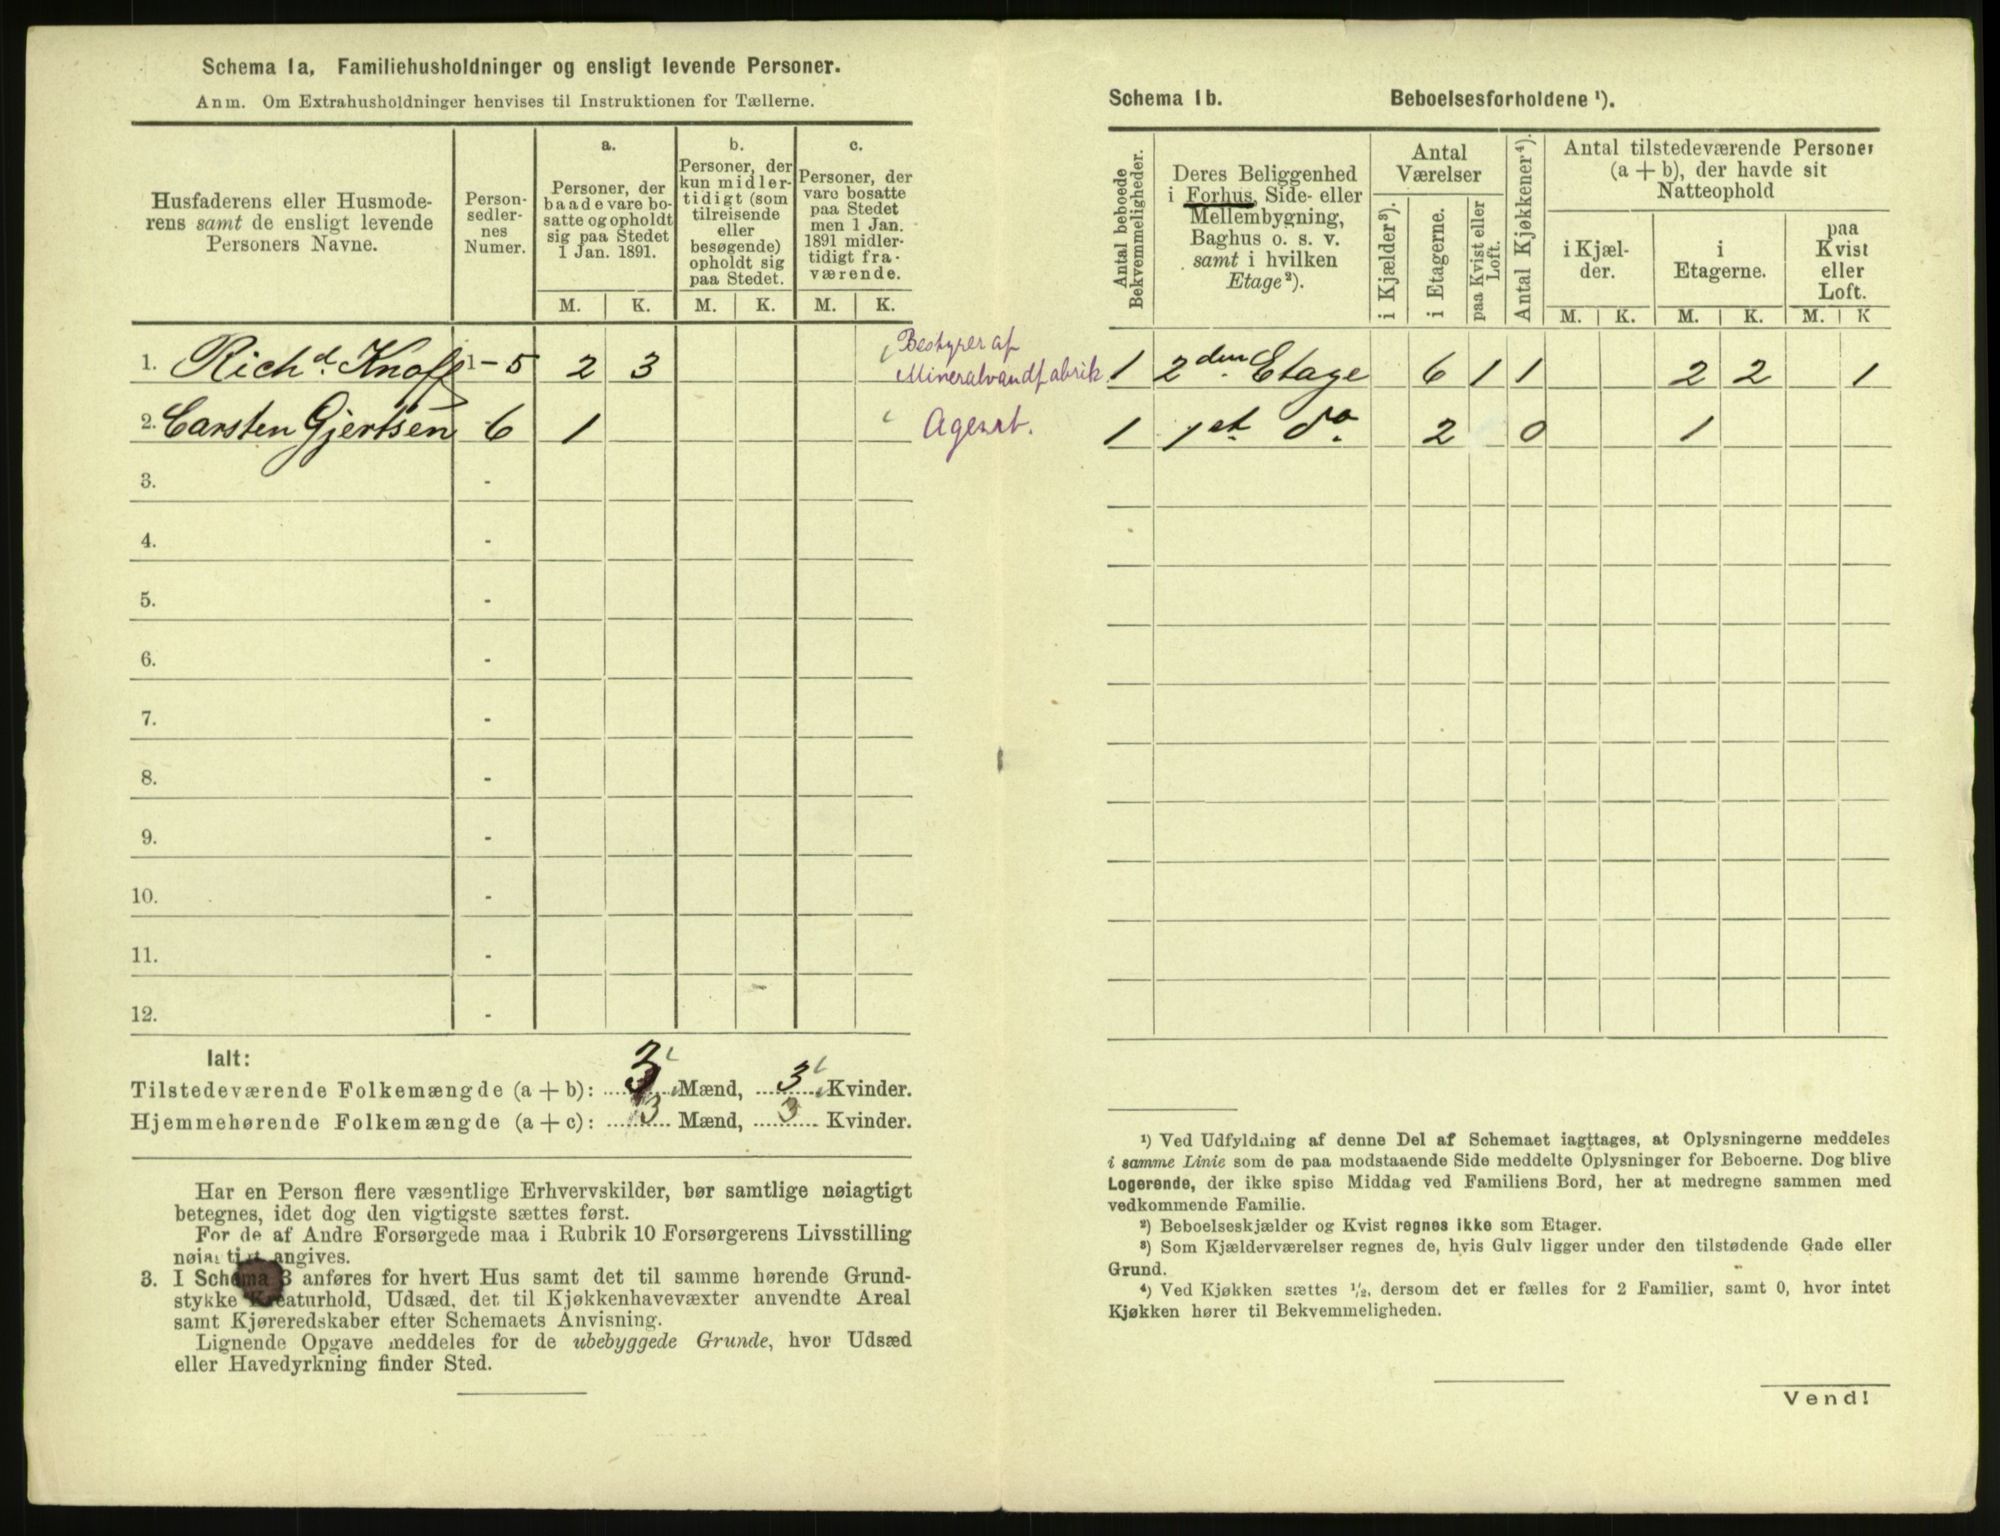 Schema 1a, Familiehusholdninger og ensligt levende Personer.
Anm. Om Extrahusholdninger henvises til Instruktionen for Tællerne.
Husfaderens eller Husmode-
rens samt de ensligt levende
Personers Navne.
Person-
sedler-
nes
Numer.
a.
Personer, der
baade vare bo-
satte og opholdt
sig paa Stedet
1 Jan. 1891.
b.
Personer, der
kun midler-
tidigt (som
tilreisende
eller
besøgende)
opholdt sig
paa Stedet.
c.
Personer, der
vare bosatte
paa Stedet
men 1 Jan.
1891 midler-
tidigt fra-
værende.
M. K. M. K. M. K.
1. Richd. Knoff 1-5 2 3 Bestyrer af
Mineralvandfabrik
2. Carsten Gjertsen 6 1 Agent.
3. -
4. -
5. -
6. -
7. -
8. -
9. -
10. -
11. -
12. -
Ialt:
Tilstedeværende Folkemængde (a + b): 3 Mænd, 3 Kvinder.
Hjemmehørende Folkemængde (a + c): 3 Mænd, 3 Kvinder.
Har en Person flere væsentlige Erhvervskilder, bør samtlige nøiagtigt
betegnes, idet dog den vigtigste sættes først.
For de af Andre Forsørgede maa i Rubrik 10 Forsørgerens Livsstilling
nøiagtigt angives.
3. I Schema 3 anføres for hvert Hus samt det til samme hørende Grund-
stykke Kreaturhold, Udsæd, det til Kjøkkenhavevæxter anvendte Areal
samt Kjøreredskaber efter Schemaets Anvisning.
Lignende Opgave meddeles for de ubebyggede Grunde, hvor Udsæd
eller Havedyrkning finder Sted.
Schema 1b. Beboelsesforholdene ¹).
Antal beboede
Bekvemmeligheder.
Deres Beliggenhed
i Forhus, Side- eller
Mellembygning,
Baghus o. s. v.
samt i hvilken
Etage²).
Antal
Værelser
i Kjælder³).
i Etagerne.
paa Kvist eller
Loft.
Antal Kjøkkener⁴).
Antal tilstedeværende Personer
(a + b), der havde sit
Natteophold
i Kjæl-
der.
i
Etagerne.
paa
Kvist
eller
Loft.
M. K. M. K. M. K
1 2den Etage 6 1 1 2 2 1
1 1st do 2 0 1
¹) Ved Udfyldning af denne Del af Schemaet iagttages, at Oplysningerne meddeles
i samme Linie som de paa modstaaende Side meddelte Oplysninger for Beboerne. Dog blive
Logerende, der ikke spise Middag ved Familiens Bord, her at medregne sammen med
vedkommende Familie.
²) Beboelseskjælder og Kvist regnes ikke som Etager.
³) Som Kjælderværelser regnes de, hvis Gulv ligger under den tilstødende Gade eller
Grund.
⁴) Ved Kjøkken sættes ½, dersom det er fælles for 2 Familier, samt 0, hvor intet
Kjøkken hører til Bekvemmeligheden.
Vend!